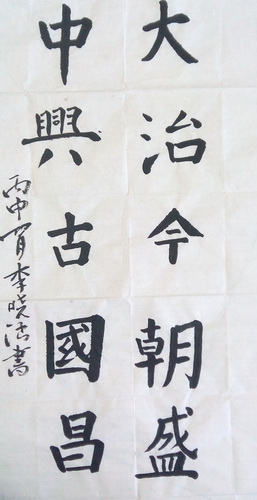 大治今朝盛
中興古國昌
丙申 李晓 書